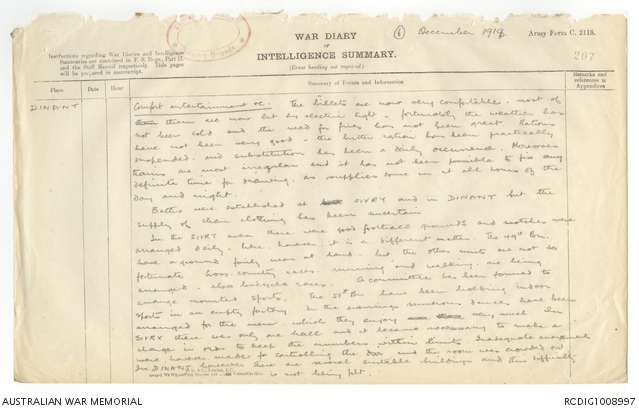 WAR DIARY
or
INTELLIGENCE SUMMARY.
(Erase heading not required.)
Instructions regarding War Diaries and Intelligence
Summaries are contained in F. S. Regs., Part II.
and the Staff Manual respectively. Title pages
will be prepared in manuscript.
(6) December 1918
Army Form C. 2118.
207
Place
Date
Hour
Summary of Events and Information
Remarks and
references to
Appendices
DINANT
Comfort entertainment etc. The billets are now very comfortable. most of
them are now lit by electric light. fortunately the weather has
not been cold and the need for fires has not been great. Rations
have not been very good. the butter ration has been practically
suspended and substitution has been a daily occurrence. Moreover
trains are most irregular and it has not been possible to fix any
definite time for drawing, as supplies come in at all hours of the
day and night.
Baths were established at SIVRY and in DINANT but the
supply of clean clothing has been uncertain
In the SIVRY area there were good football grounds and matches were
arranged daily. Here however it is a different matter. The 49th Bn.
have a ground fairly near at hand. but the other units are not so
fortunate. Cross-country races - running and walking - are being
arranged - also bicycle races. A committee has been formed to
arrange mounted sports. The Bn have been holding indoor
sports in an empty factory. In the evenings numerous dances have been
arranged for the men which they enjoy very much. In
SIVRY there was only one hall and it became necessary to make a
charge in order to keep the numbers within limits. Inadequate arrangements
were however made for controlling the door and the room was crowded out
In DINANT however there are several suitable buildings and this difficulty
is not being felt.
AUSTRALIAN WAR MEMORIAL
RCDIG1008997